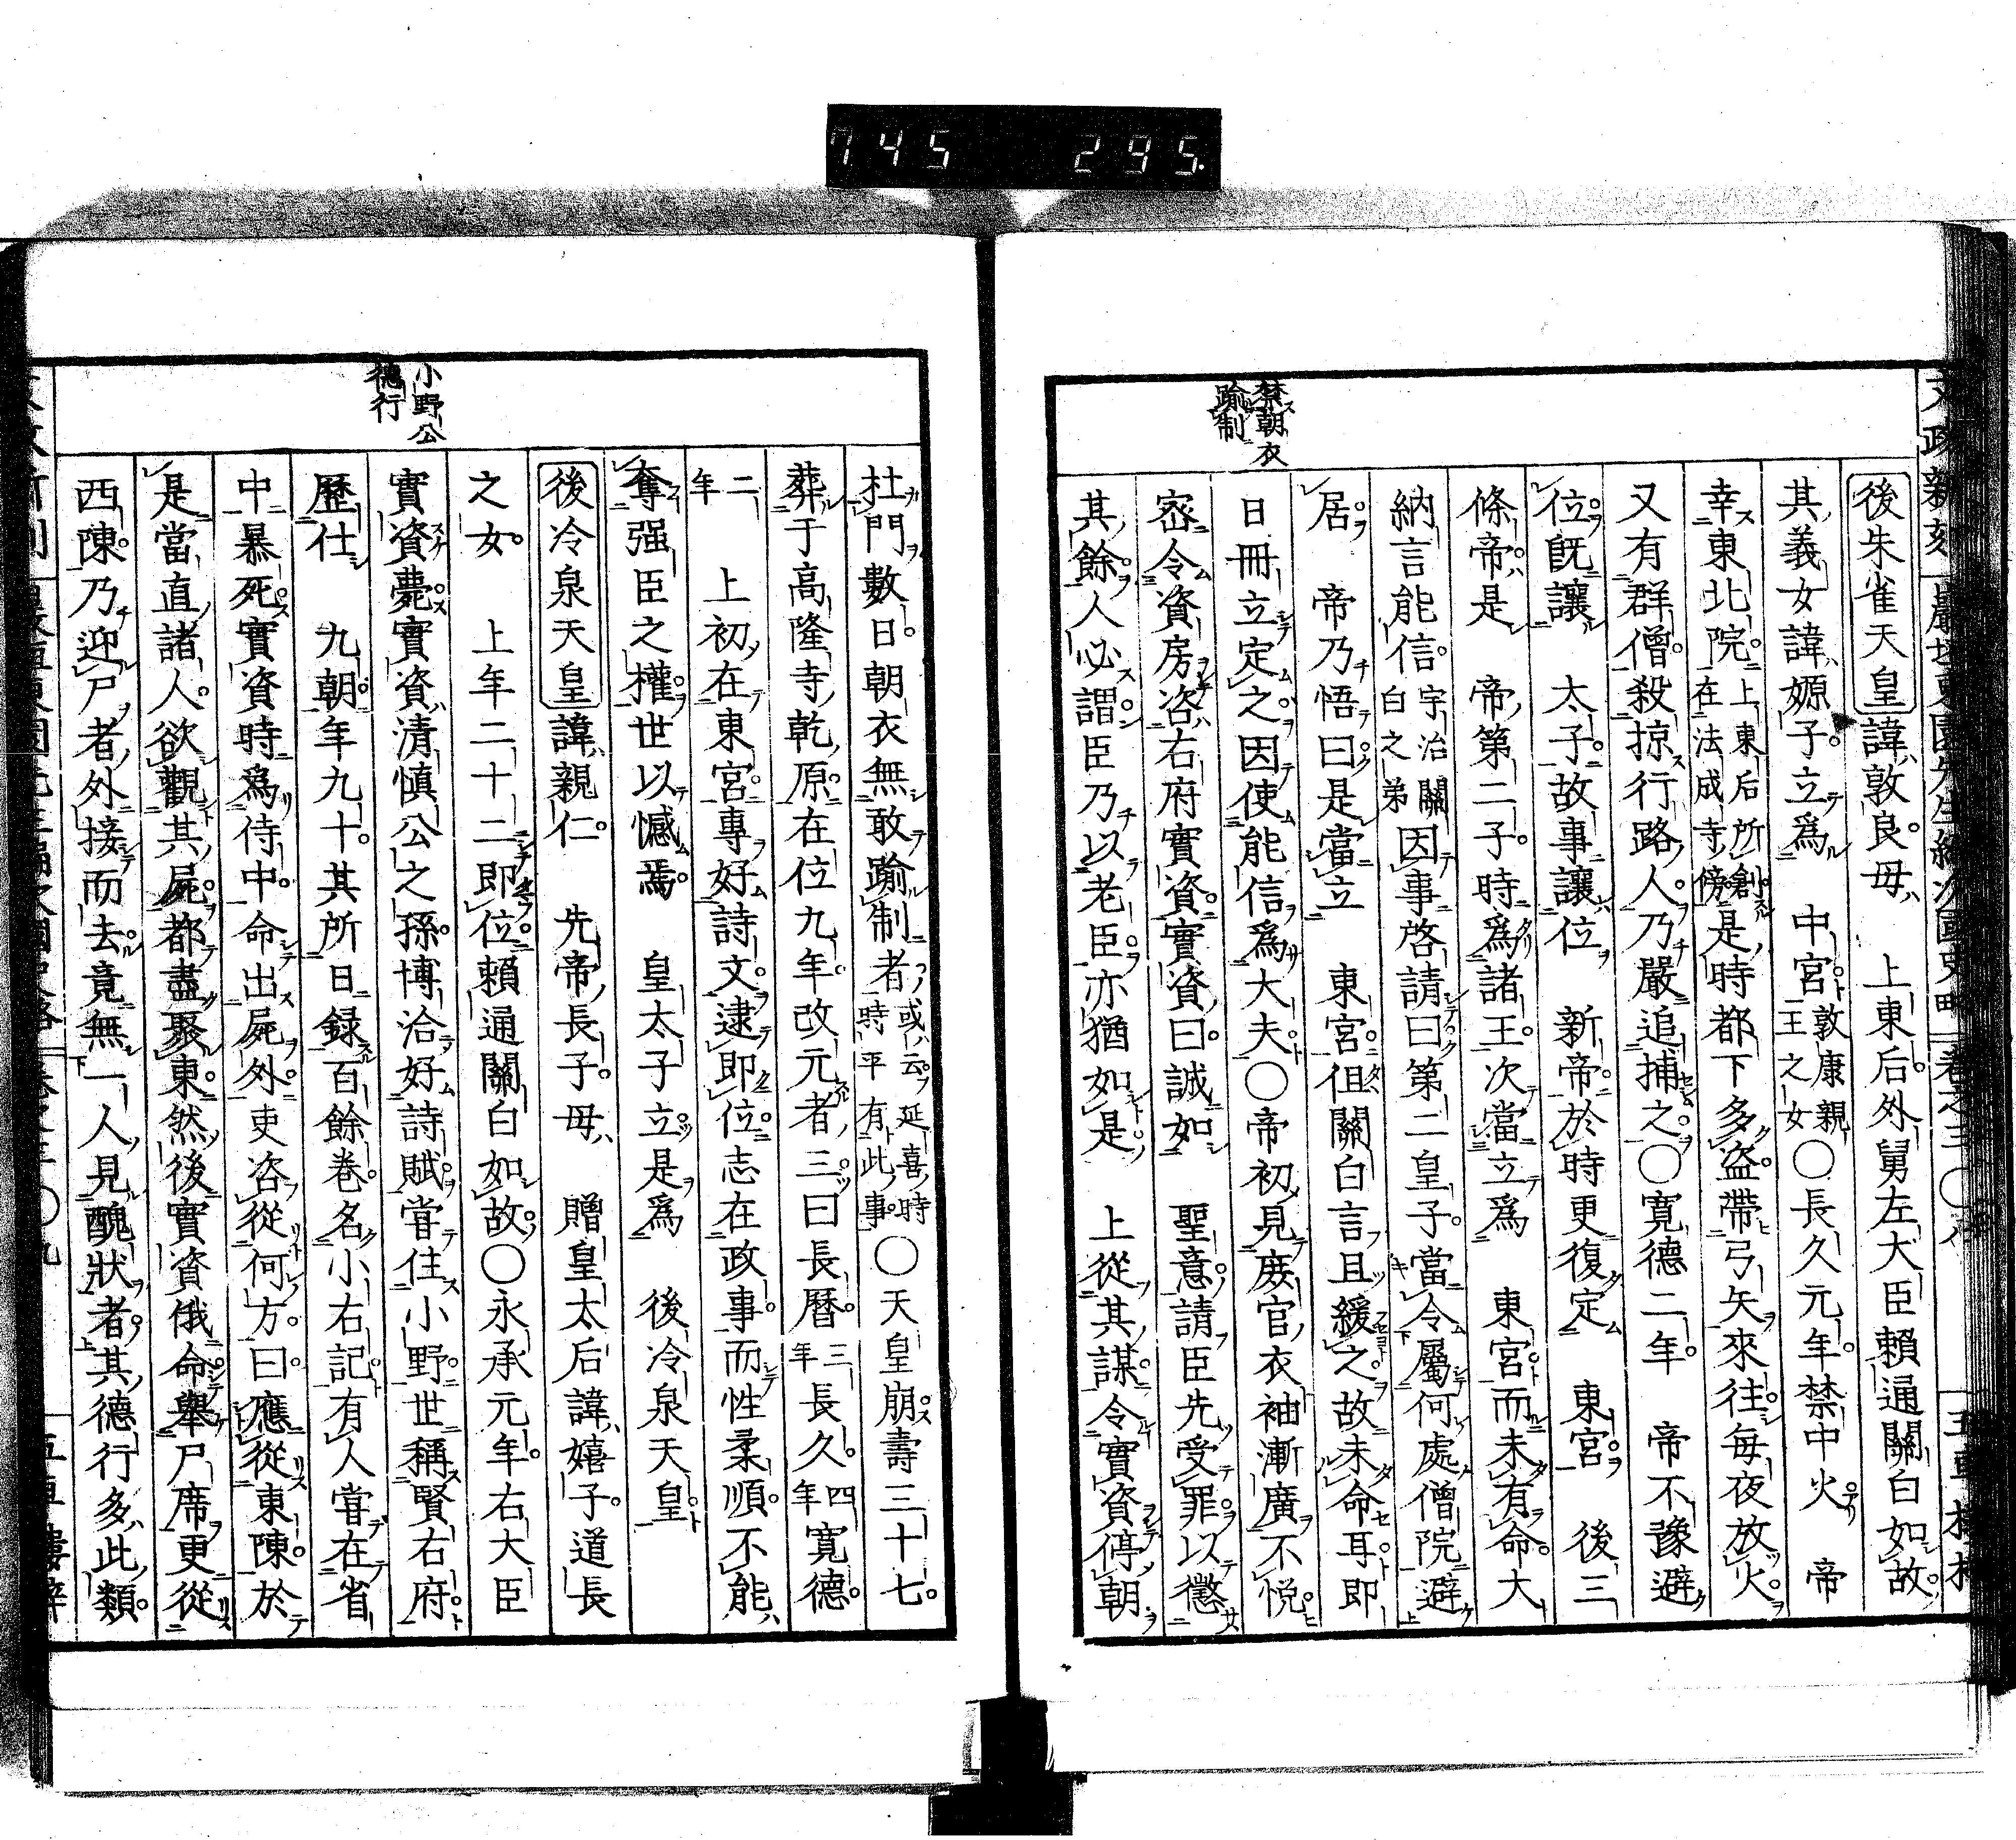 745 295.
文政新刻
巖垣東園先生編次國史略
卷之三〇八
禁朝衣
踰制
後朱雀天皇諱敦良母 上東后外舅左大臣賴通關白如故
其義女諱嫄子立爲 中宮敦康親王之女〇長久元年禁中火 帝
幸東北院上東后所創在法成寺傍是時都下多盜帶弓矢來往每夜放火
又有群僧殺掠行路人乃嚴追捕之〇寬德二年 帝不豫避
位既讓 太子故事讓位 新帝於時更復定 東宮 後三
條帝是 帝第二子時爲諸王次當立爲 東宮而未有命大
納言能信宇治關白之弟因事啓請曰第二皇子當令屬何處僧院避
居 帝乃悟曰是當立 東宮但關白言且緩之故未命耳即
日冊立定之因使能信爲大夫〇帝初見庶官衣袖漸廣不悅
密令資房咨右府實資實資曰誠如 聖意請臣先受罪以懲
其餘人必謂臣乃以老臣亦猶如是 上從其謀令實資停朝
小野公
德行
杜門數日朝衣無敢踰制者或云延喜時時平有此事〇天皇崩壽三十七
葬于高隆寺乾原在位九年改元者三曰長曆三年長久四年寬德
二年 上初在東宮專好詩文逮即位志在政事而性柔順不能
奪强臣之權世以憾焉 皇太子立是爲 後冷泉天皇
後冷泉天皇諱親仁 先帝長子母 贈皇太后諱嬉子道長
之女 上年二十二即位賴通關白如故〇永承元年右大臣
實資薨實資清愼公之孫博洽好詩賦嘗住小野世稱賢右府
歷仕 九朝年九十其所日録百餘卷名小右記有人嘗在省
中暴死實資時爲侍中命出屍外吏咨從何方曰應從東陳於
是當直諸人欲觀其屍都盡聚東然後實資俄命舉尸席更從
西陳乃迎尸者外接而去竟無一人見醜狀者其德行多此類